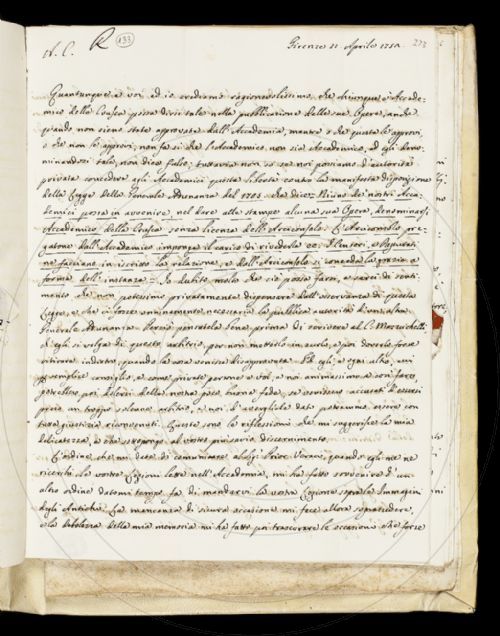 A. C. R 133 Firenze 21 Aprile 1750. 273
Quantunque a voi ed io crediamo ragionevolissimo, che chiunque è Accade-
mico della Crusca possa dirsi tale nella pubblicazione delle sue Opere, anche
quando non sieno state approvate dall'Accademia, mentre o che queste le approvi,
o che non le approvi, non fa sì che l'Accademico non sia Accademico, ed egli deno-
minandosi tale, non dice falso; tuttavia non so se noi possiamo d'autorità
privata concedere agli Accademici questa libertà contro la manifesta disposizione
della Legge della Generale Adunanza del 1705. che dice: Niuno de' nostri Acca-
demici possa in avvenire nel dare alle stampe alcuna sua Opera, denominarsi
Accademico della Crusca senza licenza dell'Arciconsolo. E l'Arciconsolo pre-
gatone dall'Accademico imponga il carico di rivederla ai Censori, e Deputati
ne facciano in iscritto la relazione, e dall'Arciconsolo si conceda la grazia a
forma dell'instanza. Io dubito molto che si possa fare, e sarei di senti-
mento che non potessimo privatamente dispensare dall'osservanza di questa
Legge, e che ci fosse onninamente necessaria la pubblica autorità d'un'altra
Generale Adunanza. Perciò pensatela bene, prima di scrivere al C. Mazzuchelli
ch'egli si valga di questo arbitrio, per non metterlo in ardo, e poi doverlo forse
ritirare indietro, quando la cosa venisse disapprovata. Ed egli, e ogni altro, cui
per semplice consiglio, e come private persone e voi, e noi animassimo a così fare,
potrebbe poi dolersi della nostra poca buona fede, se venissero accusati d'essersi
preso un troppo solenne arbitrio, e noi d'averglielo dato potremmo essere con
tutta giustizia rimproverati. Queste sono le riflessioni che mi suggerisce la mia
delicatezza, e che sottopongo al vostro più savio discernimento.
L'ordine che mi date di comunicare al Sig.r Priore Vecchi, quando egli me ne
ricerchi, le vostre Lezioni lette nell'Accademia, mi ha fatto sovvenire d'un
altro ordine datomi tempo fa di mandarvi la vostra Lezione sopra le Immagini
degli Antichi. La mancanza di sicura occasione mi fece allora soprassedere,
e la debolezza della mia memoria mi ha fatto poi trascurare le occasioni che forse